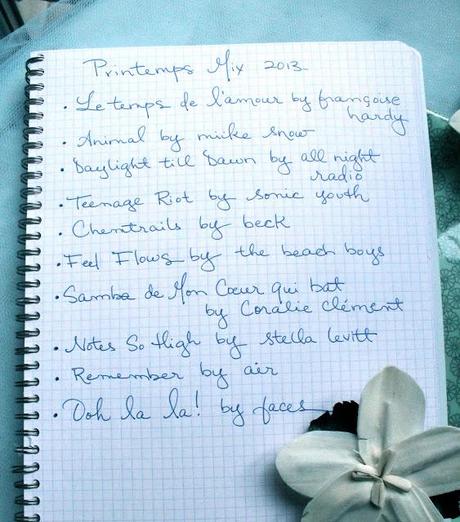 Printemps Mix 2013
• Le temps de l'amour by françoise
hardy
• Animal by miike snow
• Daylight till Dawn by all night
radio
• Teenage Riot by sonic youth
• Chemtrails by beck
• Feel Flows by the beach boys
• Samba de Mon Cœur qui bat
by Coralie Clément
• Notes So High by stella levitt
• Remember by air
• Ooh la la! by faces